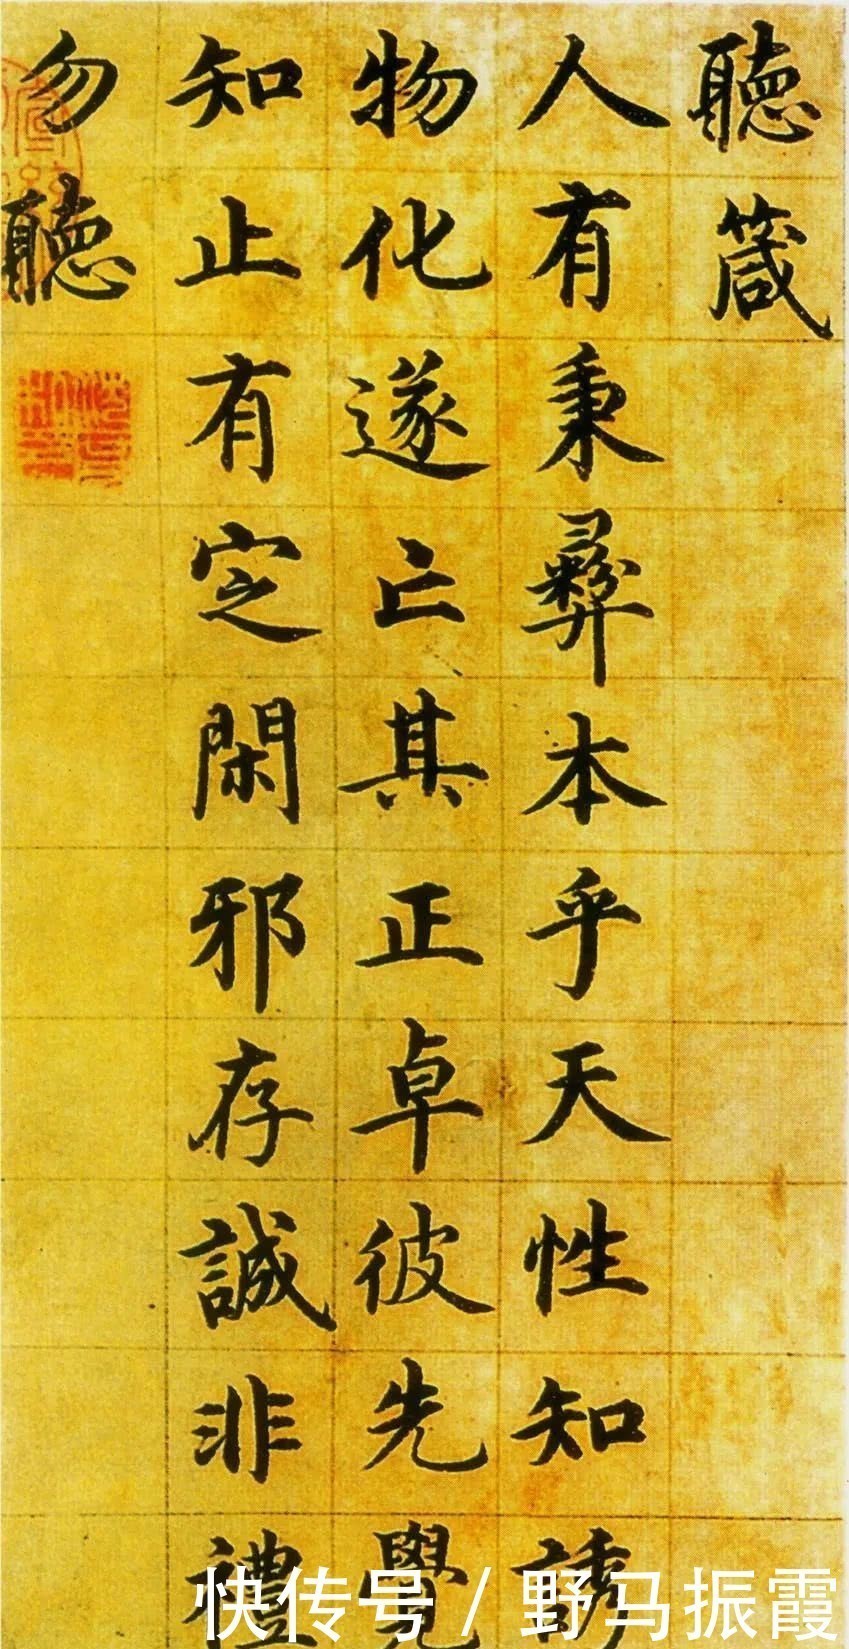 聽箴
人有秉彝本乎天性知誘
物化遂亡其正卓彼先覺
知止有定閑邪存誠非禮
勿聽
快传号／野马振霞